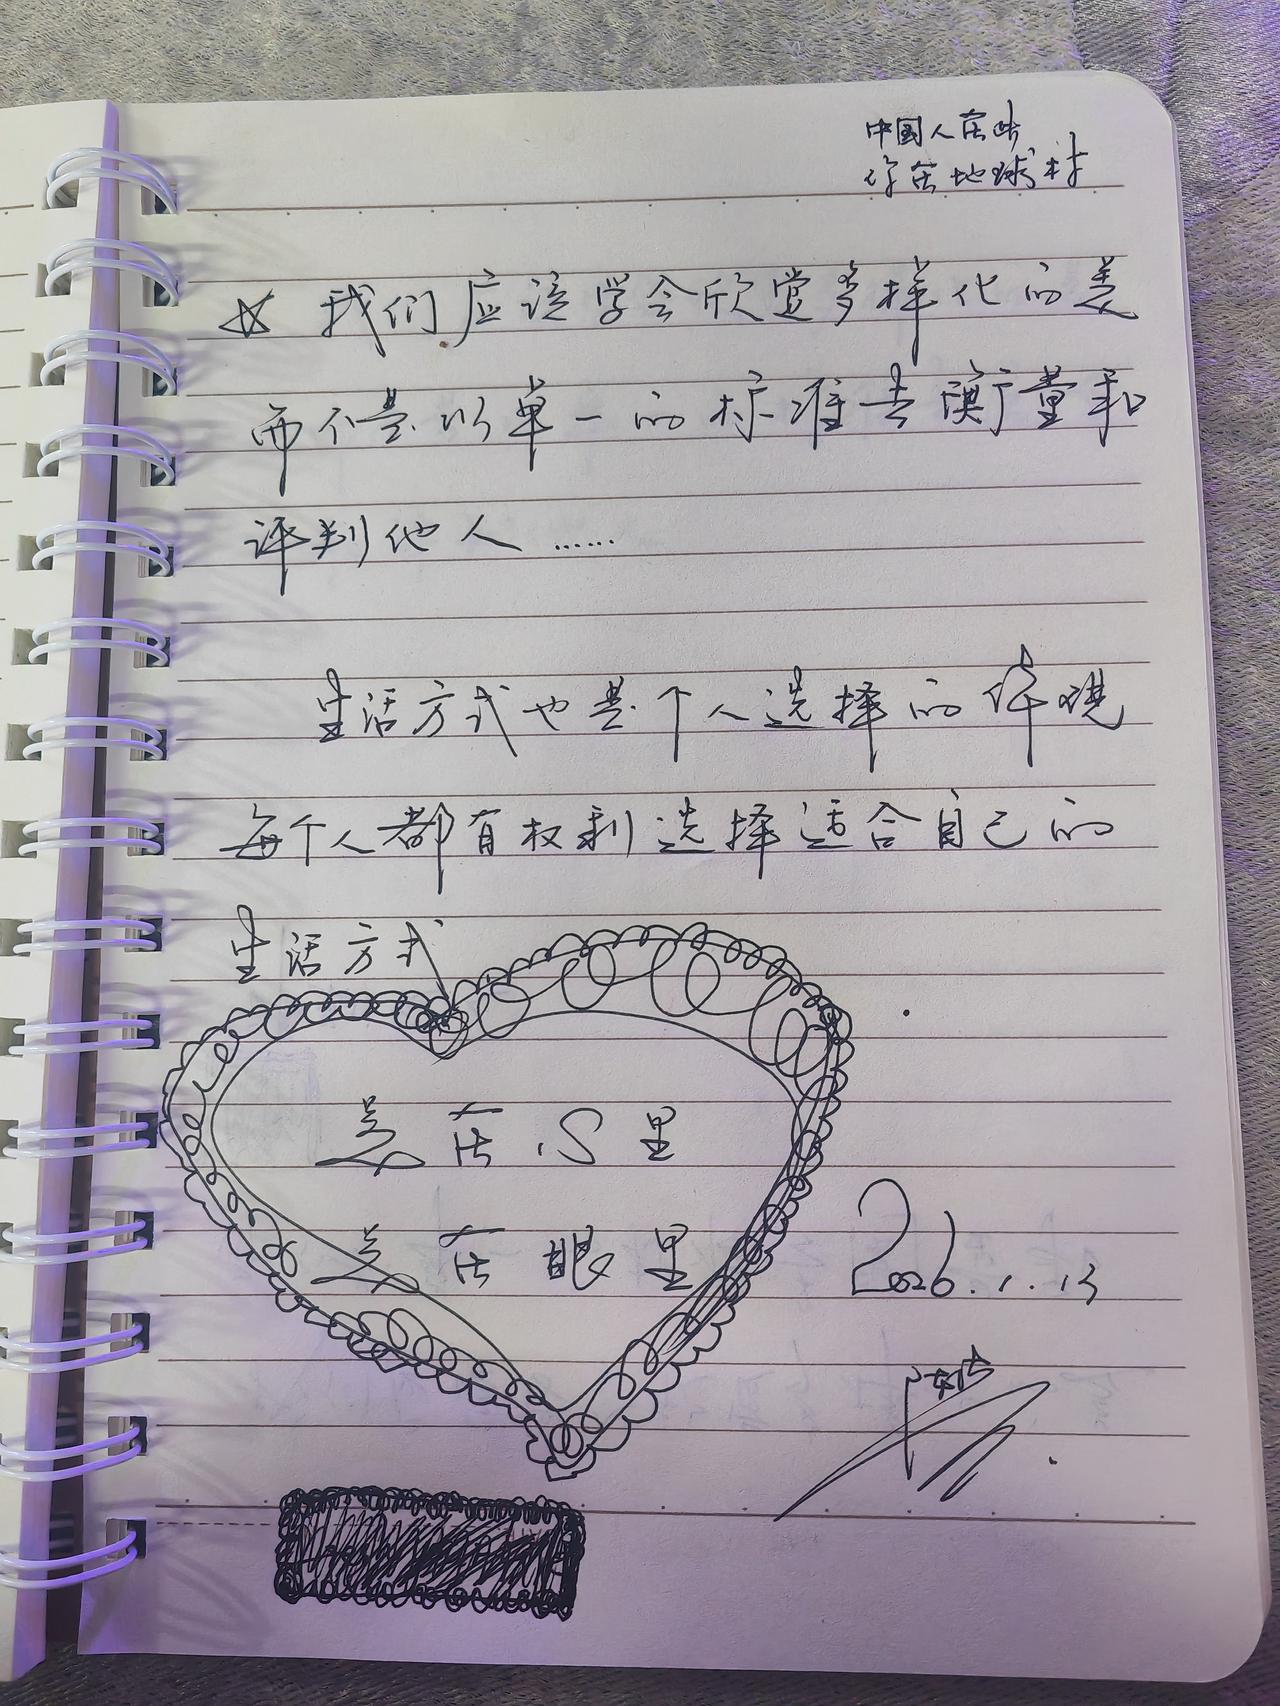 中国人在此
你在地球村
☆ 我们应该学会欣赏多样化的美
而不是以单一的标准去衡量和
评判他人……
生活方式也是个人选择的体现
每个人都有权利选择适合自己的
生活方式
美在心里
美在眼里
2026.1.13